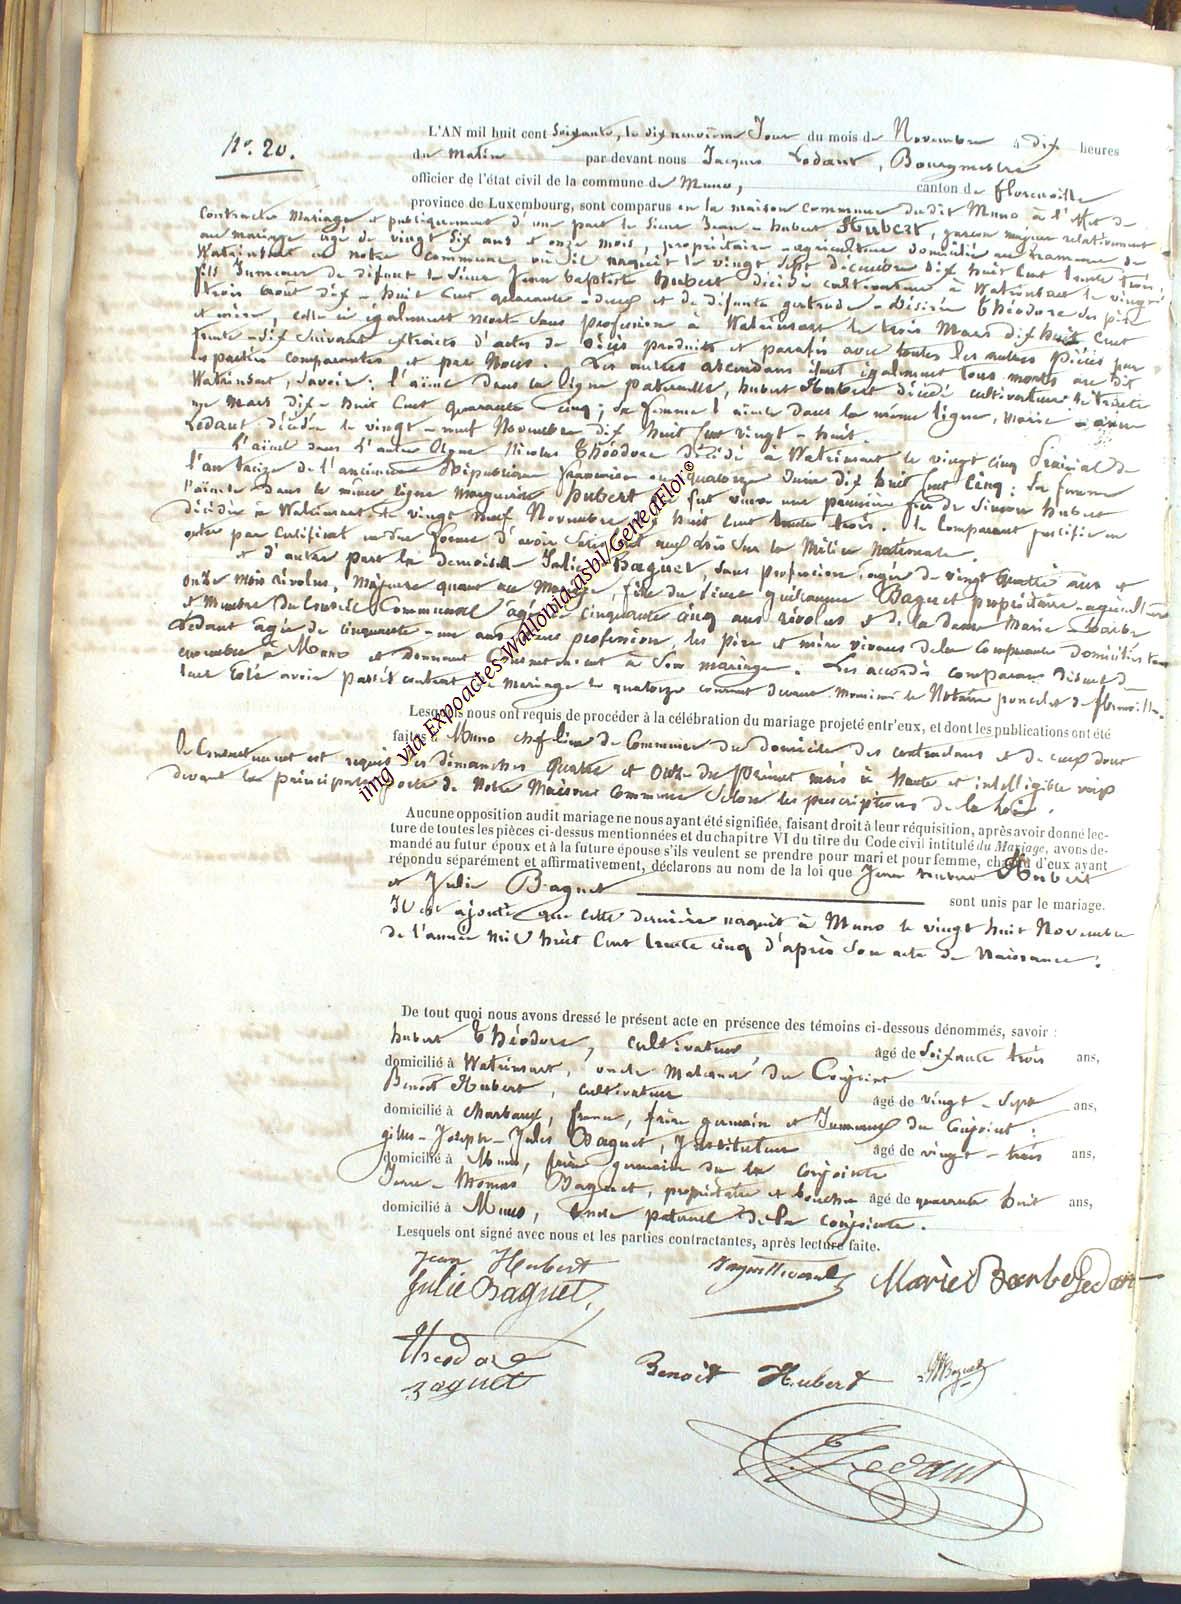 N°. 20.
L'AN mil huit cent Soixante, le dix neuvième Jour du mois de Novembre à dix heures
du Matin par devant nous Jacques Ledant, Bourgmestre
officier de l'état civil de la commune de Muno, canton de florenville
province de Luxembourg, sont comparus en la maison commune dudit Muno à l'effet de
Contracter Mariage et publiquement d'une part le Sieur Jean-hubert Hubert, garçon majeur relativement
au mariage âgé de vingt Six ans et onze mois, propriétaire-agriculteur domicilié au hameau de
Watrinsart en notre Commune où il naquit le vingt Sept décembre dix huit Cent trente trois,
fils Jumeau de défunt le Sieur Jean baptiste hubert décédé cultivateur à Watrinsart le vingt
trois août dix-huit Cent quarante-deux et de défunte gertrude-Désirée Théodore Ses père
et mère, celle ci également morte Sans profession à Watrinsart le trois Mars dix huit Cent
trente-dix Suivant extraits d'actes de décès produits et parafés avec toutes les autres pièces par
les parties comparantes et par Nous. Les autres ascendans étant également tous morts au dit
Watrinsart, Savoir: l'aïeul dans la ligne paternelle, hubert Hubert décédé cultivateur le trente
Mars dix-huit Cent quarante cinq; Sa femme l'aïeule dans la même ligne, Marie
Ledant décédée le vingt-neuf Novembre dix huit Cent vingt-huit.
L'aïeul dans l'autre ligne Nicolas Théodore décédé à Watrinsart le vingt cinq Prairial de
l'an treize de l'ancienne République française ou quatorze Juin dix huit Cent Cinq; Sa femme
l'aïeule dans la même ligne Marguerite hubert fut une première fois de Simon hubert
décédée à Watrinsart le vingt neuf Novembre dix huit Cent trente trois. le Comparant justifie en
outre par Certificat en due forme d'avoir Satisfait aux lois Sur la Milice Nationale.
et d'autre part la demoiselle Julie Baguet, Sans profession, âgée de vingt quatre ans et
onze mois révolus, majeure quant au Mariage, fille du Sieur guillaume Baguet propriétaire-agriculteur
et Membre du Conseil Communal âgé de Cinquante Cinq ans révolus et de la Dame Marie-Barbe
Ledant âgée de cinquante-une ans Sans profession, les père et mère vivans de la Comparante domiciliés tous
ensemble à Muno et donnant Consentement à Son mariage. Les accordés comparans disent de
leur Côté avoir passé contrat de Mariage le quatorze courant devant Monsieur le Notaire poncelet de florenville.
Lesquels nous ont requis de procéder à la célébration du mariage projeté entr'eux, et dont les publications ont été
faites à Muno chef lieu de Commune du domicile des contractans et de ceux dont
le Consentement est requis les dimanches quatre et onze du présent mois à haute et intelligible voix
devant la principale porte de Notre Maison Commune Selon les prescriptions de la loi.
Aucune opposition audit mariage ne nous ayant été signifiée, faisant droit à leur réquisition, après avoir donné lec-
ture de toutes les pièces ci-dessus mentionnées et du chapitre VI du titre du Code civil intitulé du Mariage, avons de-
mandé au futur époux et à la future épouse s'ils veulent se prendre pour mari et pour femme, chacun d'eux ayant
répondu séparément et affirmativement, déclarons au nom de la loi que Jean hubert Hubert
et Julie Baguet sont unis par le mariage.
Il est ajouté que cette dernière naquit à Muno le vingt huit Novembre
de l'année mil huit Cent trente cinq d'après Son acte de Naissance.
De tout quoi nous avons dressé le présent acte en présence des témoins ci-dessous dénommés, savoir :
hubert Théodore, cultivateur, âgé de Soixante trois ans,
domicilié à Watrinsart, oncle Maternel du Conjoint
Benoit Hubert, cultivateur âgé de vingt-Sept ans,
domicilié à Charbaux, france, frère germain et Jumeau du Conjoint;
gilles-Joseph-Jules Baguet, Instituteur âgé de vingt-trois ans,
domicilié à Muno, frère germain de la conjointe
Baguet, propriétaire et boucher âgé de quarante huit ans,
domicilié à Muno, oncle paternel de la conjointe.
Lesquels ont signé avec nous et les parties contractantes, après lecture faite.
Jean Hubert
Julie Baguet
Marie Barbe Ledant
Théodore
Baguet
Benoit Hubert
Baguet
J. Ledant
img via Expoactes-Wallonia.asbl/GeneaFloi®